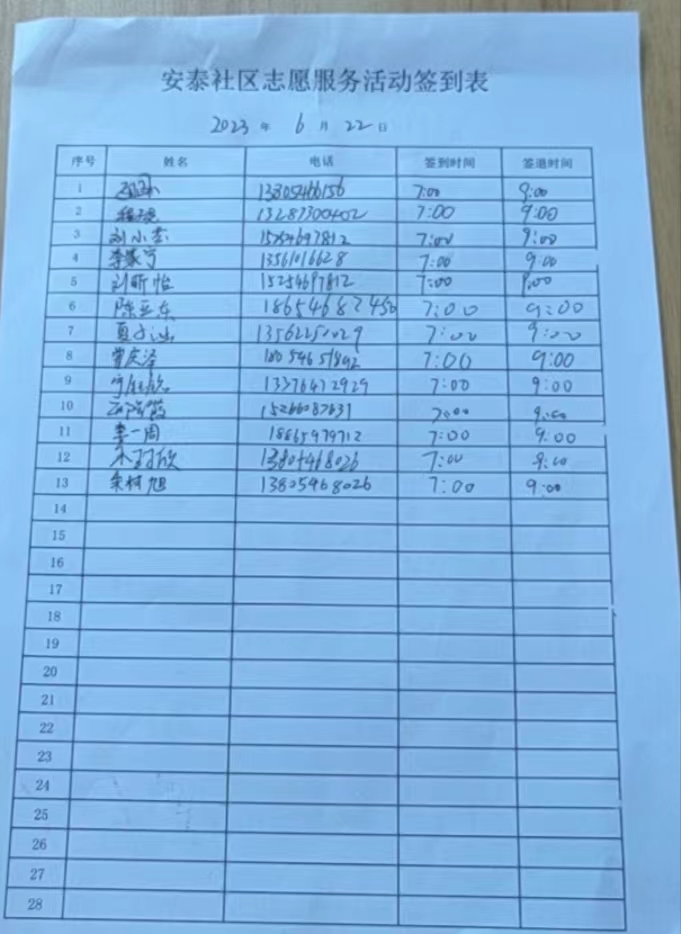 安泰社区志愿服务活动签到表
2023 年 6 月 22 日
序号 姓名 电话 签到时间 签退时间
1 13805466156 7:00 9:00
2 13287300402 7:00 9:00
3 刘小艺 15254697812 7:00 9:00
4 李家宁 13561016628 7:00 9:00
5 刘昕怡 15254697812 7:00 9:00
6 陈亚东 18654682450 7:00 9:00
7 7:00 9:00
8 曾庆泽 18054651892 7:00 9:00
9 13376412929 7:00 9:00
10 15266087631 7:00 9:00
11 李一周 18865979712 7:00 9:00
12 13805468026 7:00 9:00
13 宋柯旭 13805468026 7:00 9:00
14
15
16
17
18
19
20
21
22
23
24
25
26
27
28